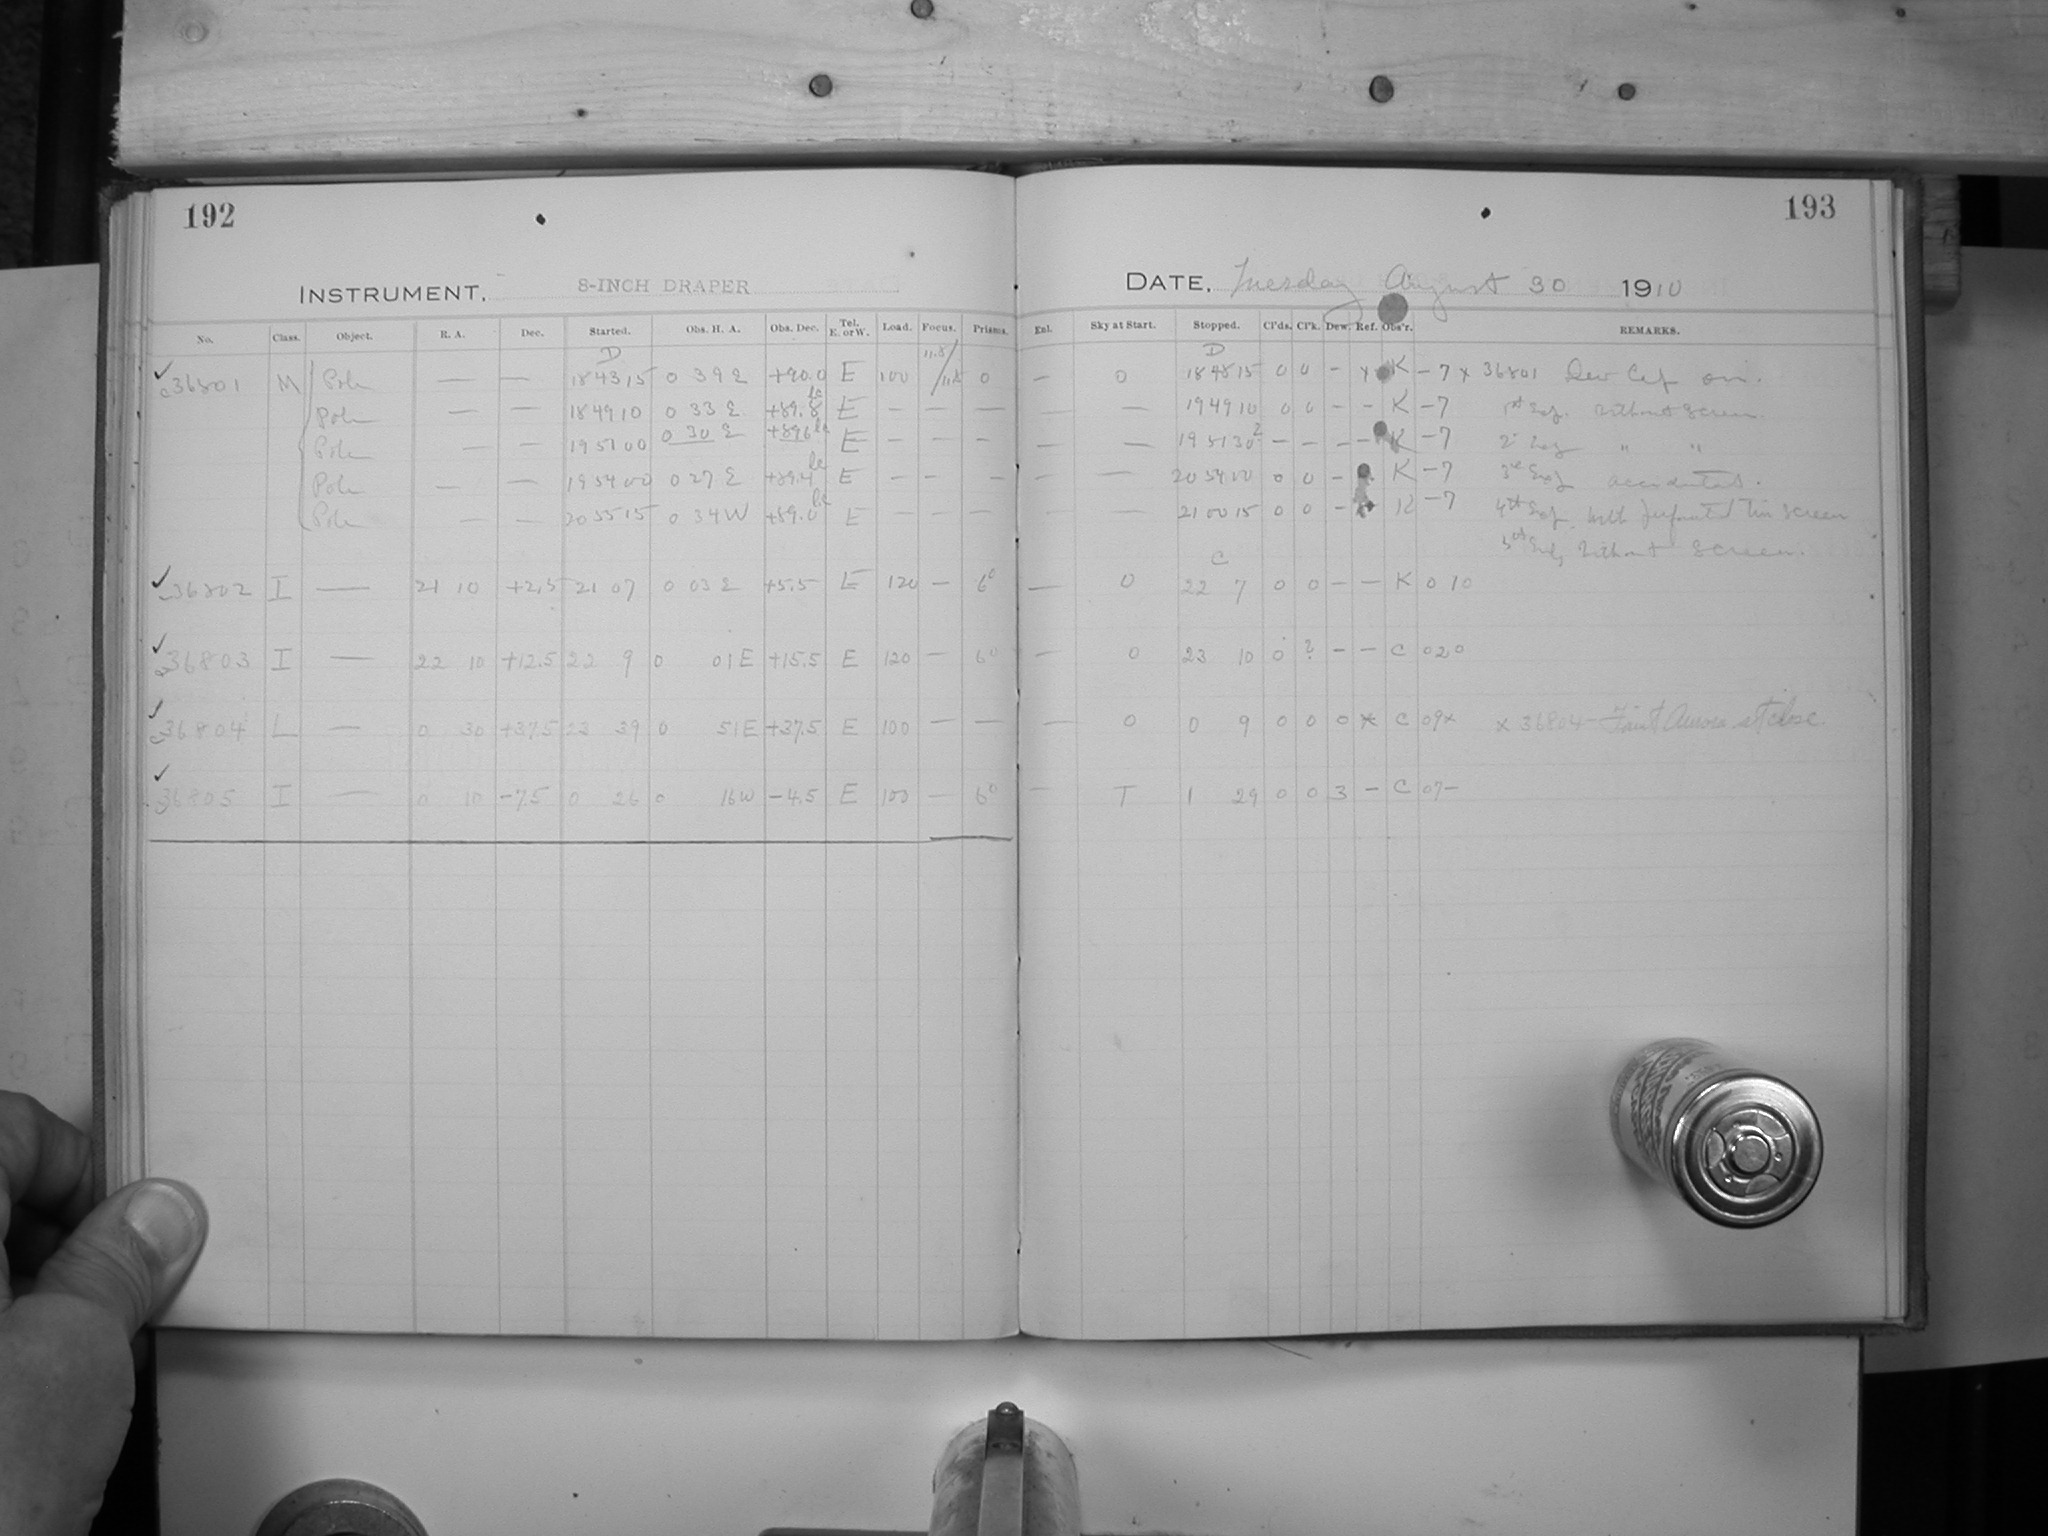 192
193
INSTRUMENT. 8-INCH DRAPER
DATE. Tuesday August 30 1910
No. Class. Object. R. A. Dec. Started. Obs. H. A. Obs. Dec. Tel. E. or W. Load. Focus. Prisms. Enl. Sky at Start. Stopped. Cl'ds. Cl'k. Dew. Ref. Obs'r. REMARKS.
D 11.8/ D
36801 M Pole — — 184315 0 39 E +90.0 E 100 0 — 0 184815 0 0 - x K -7 x 36801 Dew Cap on.
Pole — — 184910 0 33 E +89.8 E — — — — 194910 0 0 - - K -7 1st Exp. Without Screen.
Pole — — 195100 0 30 E +89.6 E — — — — 195130 - - - - K -7 2d Exp " "
Pole — — 195400 0 27 E E — — — — 205400 0 0 - K -7 3rd Exp accidental.
Pole — — 205515 0 34 W +89.0 E — — — — 210015 0 0 - K -7 4th Exp. With perforated tin screen
5th Exp. Without Screen.
C
36802 I — 21 10 +2.5 21 07 0 03 E +5.5 E 120 — 6° — 0 22 7 0 0 - - K 0 10
36803 I — 22 10 +12.5 22 9 0 01 E +15.5 E 120 — 6° — 0 23 10 0 ? - - C 020
36804 L — 0 30 +37.5 23 39 0 51 E +37.5 E 100 — — — 0 0 9 0 0 0 x C 09x x 36804 - Faint Aurora at close
36805 I — 0 10 -7.5 0 26 0 16 W -4.5 E 100 — 6° — T 1 29 0 0 3 - C 07-